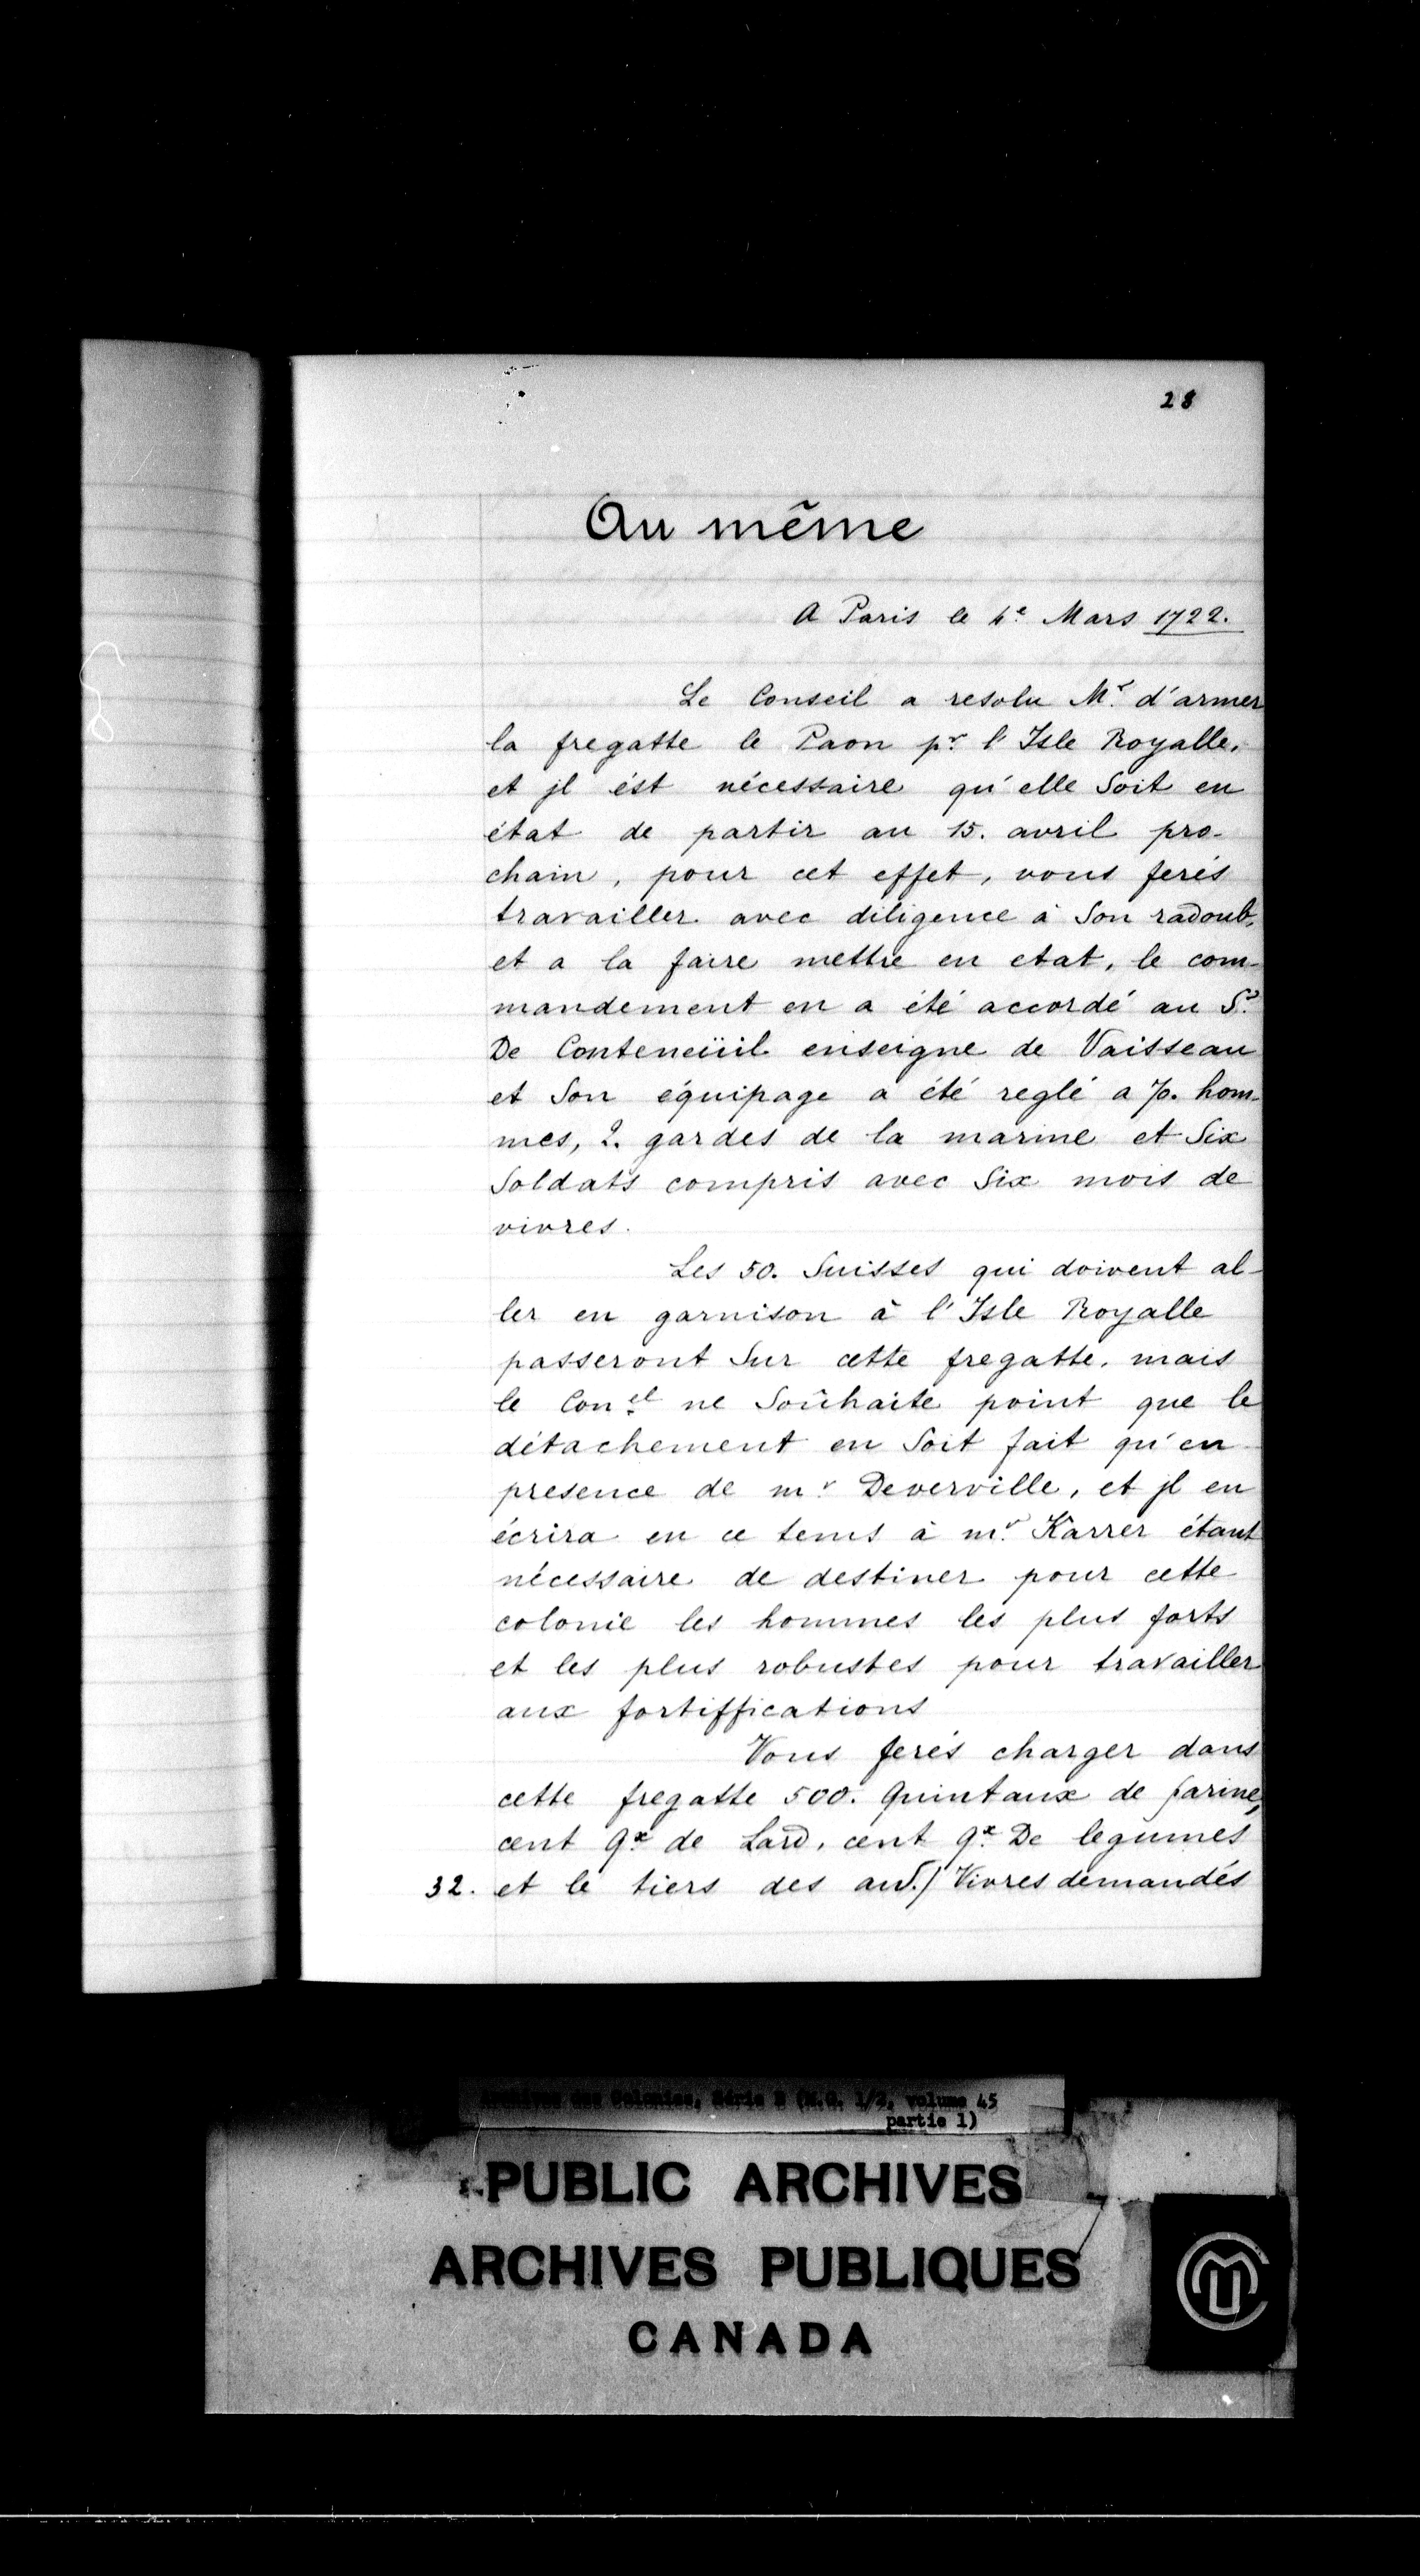 28
Au même
A Paris le 4e Mars 1722.
Le Conseil a resolu Mr. d'armer
la fregatte le Paon pr l'Isle Royalle,
et jl ést nécessaire qu'elle Soit en
état de partir au 15. avril pro-
chain, pour cet effet, vous ferés
travailler avec diligence à Son radoub,
et a la faire mettre en etat, le com-
mandement en a été accordé au Sr.
De Conteneüil enseigne de Vaisseau
et Son équipage a été reglé a 70. hom-
mes, 2. gardes de la marine et Six
Soldats compris avec Six mois de
vivres.
Les 50. Suisses qui doivent al-
ler en garnison à l'Isle Royalle
passeront Sur cette fregatte, mais
le Conel ne Soûhaite point que le
détachement en Soit fait qu'en
presence de mr. Deverville, et jl en
écrira en ce tems à mr. Karrer étant
nécessaire de destiner pour cette
colonie les hommes les plus forts
et les plus robustes pour travailler
aux fortiffications
Vous ferés charger dans
cette fregatte 500. Quintaux de farine,
cent qx. de Lard, cent qx. De legumes
32. et le tiers des Vivres demandés
Archives des Colonies, Série B (M.G. 1/2, volume 45
partie 1)
PUBLIC ARCHIVES
ARCHIVES PUBLIQUES
CANADA